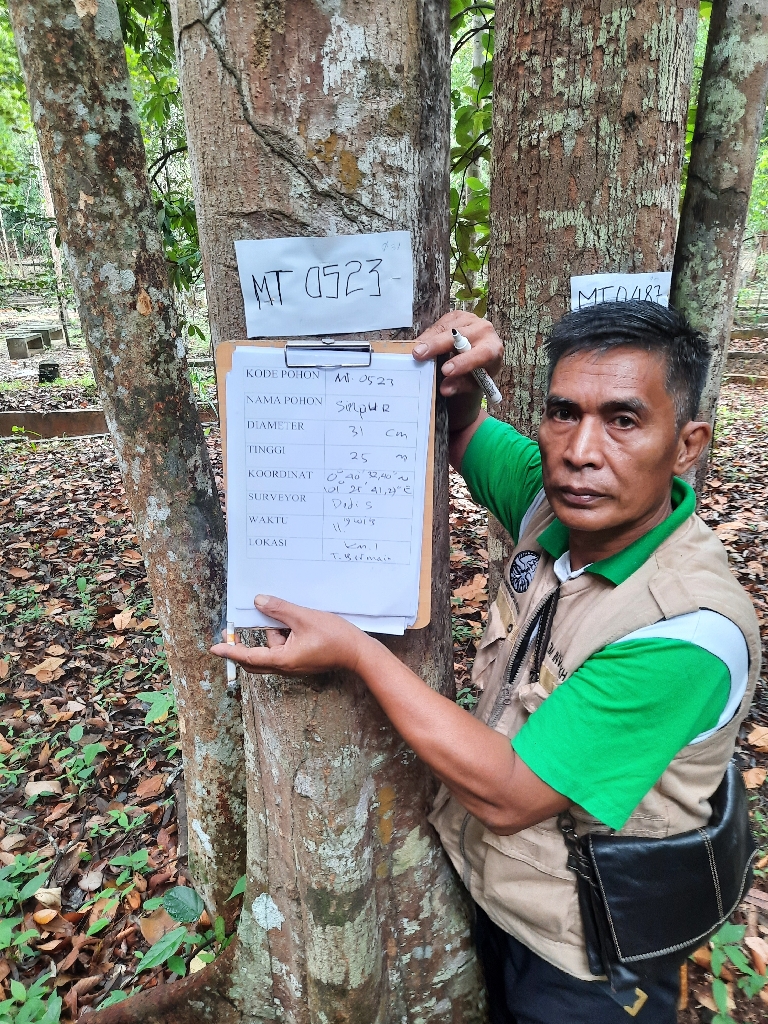 MT 0523
MT 0487
KODE POHON MT. 0523
NAMA POHON Simpur
DIAMETER 31 cm
TINGGI 25 m
KOORDINAT
SURVEYOR Dedi S
WAKTU
LOKASI Km. 1